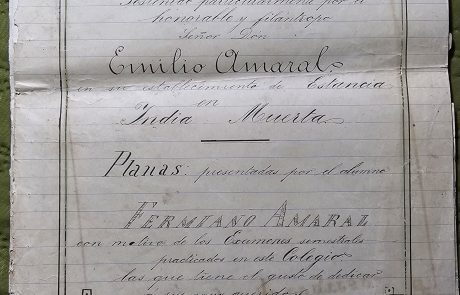 Sostenido particularmente por el
honorable y filántropo
Señor Don
Emilio Amaral
en su establecimiento de Estancia
en
India Muerta
Planas: presentadas por el alumno
FERMIANO AMARAL
con motivo de los Exámenes semestrales
practicados en este Colegio
las que tiene el gusto de dedicar